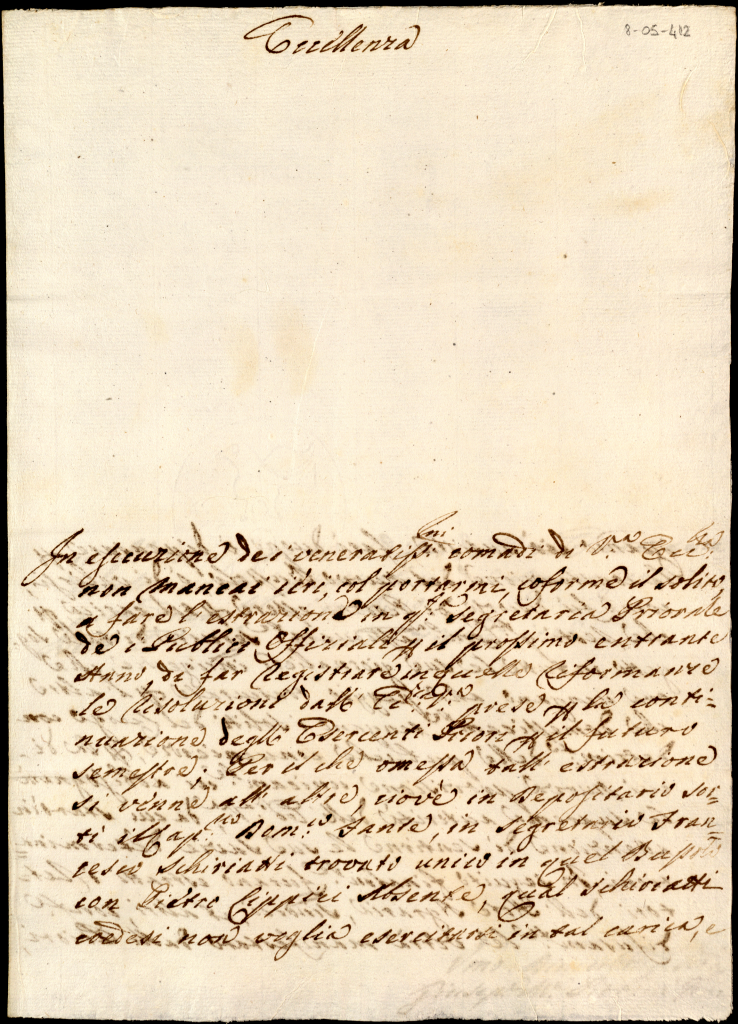 Eccellenza
8-05-412
In esecuzione dei veneratiss.mi comadi di V.ra Ecc.za
non mancai ieri, col portarmi, coforme il solito,
a fare l'estrazione in q.ta Segretaria Priorale
de i Publici Offiziali p il prossimo entrante
Anno, di far Registrare in quelle Reformanze
le Risoluzioni dall' prese p la conti-
nuazione degli Esercenti Priori p il futuro
semestre; Per il che omessa tall' estrazione
si venne all' altre, cioè in Depositario sor-
tì il Cap. Dom.co Sante, in Segretario Fran-
cesco Schiriatti trovato unico in quel Bussolo
con Pietro Cippici Absente, qual Schiriatti
credesi non voglia esercitarsi in tal carica, e